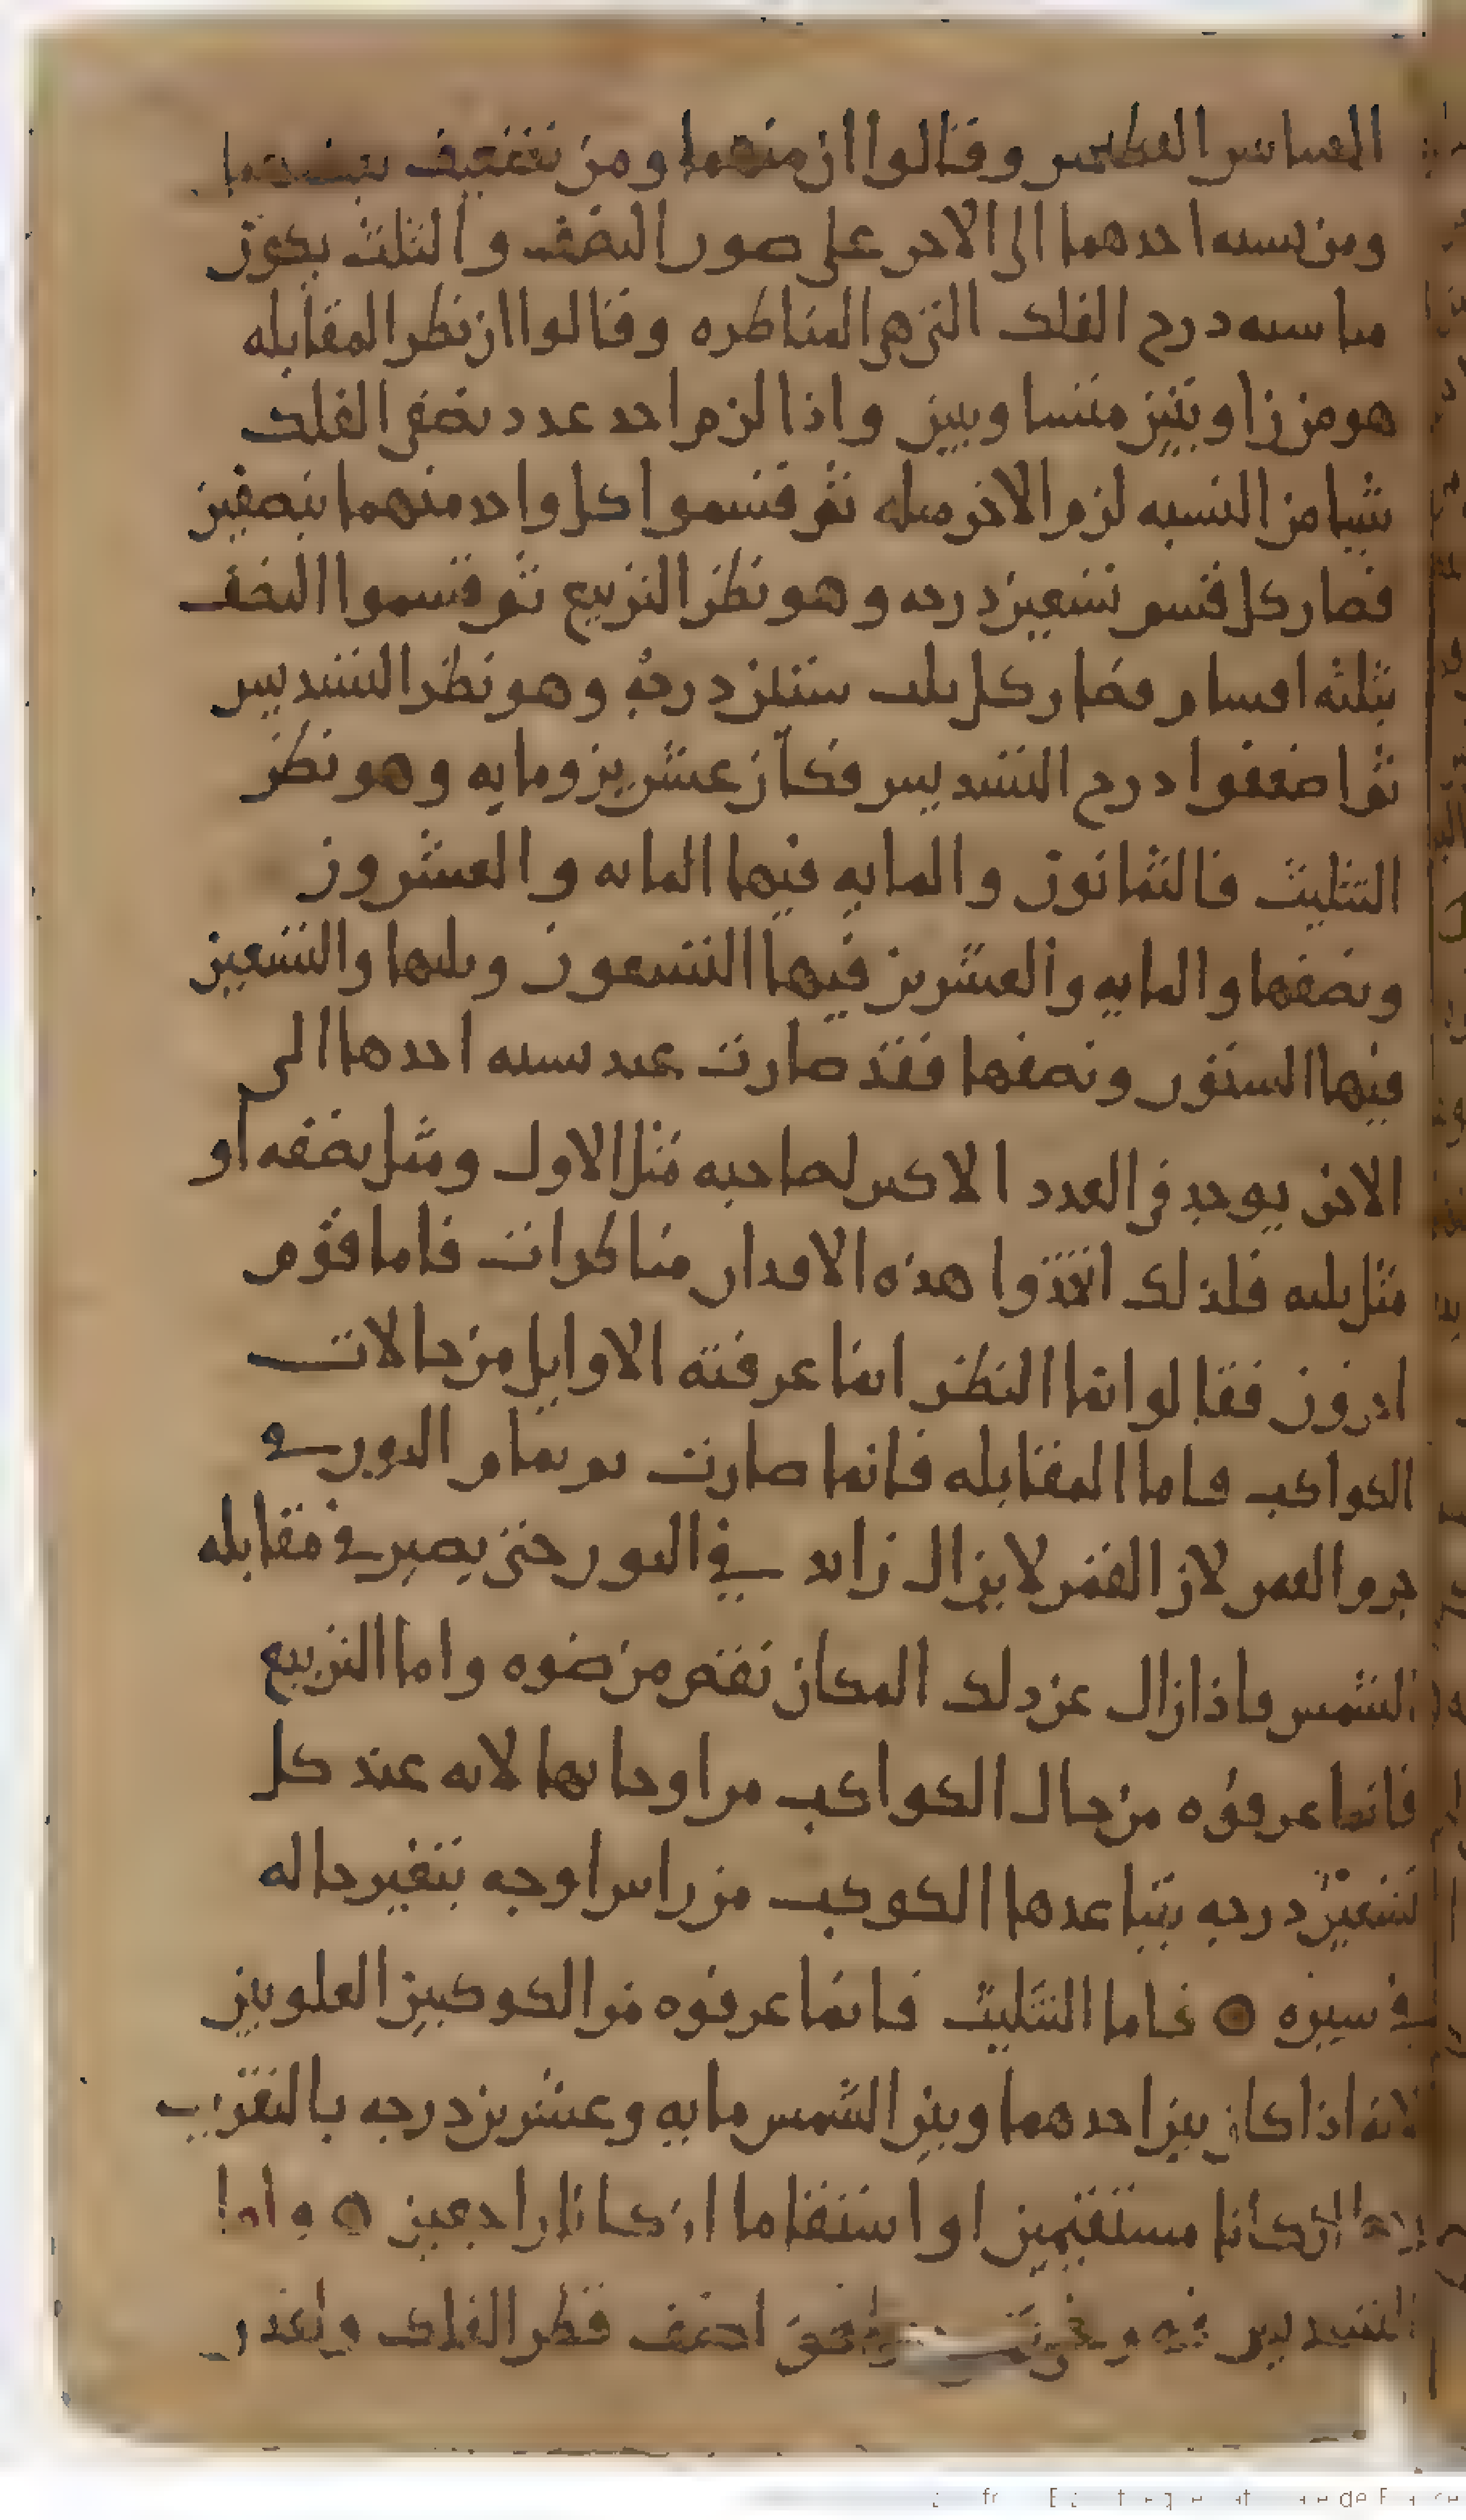 وقالوا ان منهما ومن تضعيف
ومن نسبه احدهما الى الاخر على صور النصف والثلث يكون
مناسبه درج الفلك التي هي المناظره وقالوا ان نظر المقابله
هو من زاويتين متساويتين واذا لزم احد عدد نصفي الفلك
شيا من النسبه لزم الاخر مثله ثم قسموا كل واحد منهما بنصفين
فصار كل قسم تسعين درجه وهو نظر التربيع ثم قسموا النصف
بثلثه اقسام فصار كل ثلث ستين درجة وهو نظر التسديس
ثم اضعفوا درج التسديس فكان عشرين ومايه وهو نظر
التثليث فالثمانون والمايه فيها المايه والعشرون
ونصفها والمايه والعشرين فيها التسعون وثلثها والتسعين
فيها الستون ونصفها فقد صارت عند نسبه احدها الى
الاخر يوجد في العدد الاكبر لصاحبه مثل الاول ومثل نصفه او
مثل ثلثه فلذلك اتخذوا هذه الاقدار مناظرات فاما قوم
اخرون فقالوا انما النظر انما عرفته الاوايل من حالات
الكواكب فاما المقابله فانما صارت تتم بتمام الدور في
جرم القمر لان القمر لا يزال زايد في النور حتى يصير في مقابله
الشمس فاذا زال عن ذلك المكان نقص من ضوه واما التربيع
فانما عرفوه من حال الكواكب من اوجاتها لانه عند كل
تسعين درجه يتباعدها الكوكب من راس اوجه يتغير حاله
في سيره ٥ فاما التثليث فانما عرفوه من الكوكبين العلويين
لانه اذا كان بين احدهما وبين الشمس مايه وعشرين درجه بالتقريب
ان كانا مستقيمين او استقاما ان كانا راجعين ٥ واما
التسديس نصف قطر الفلك